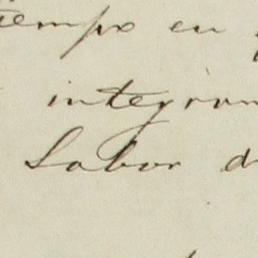 tiempo en
integran
Labor d